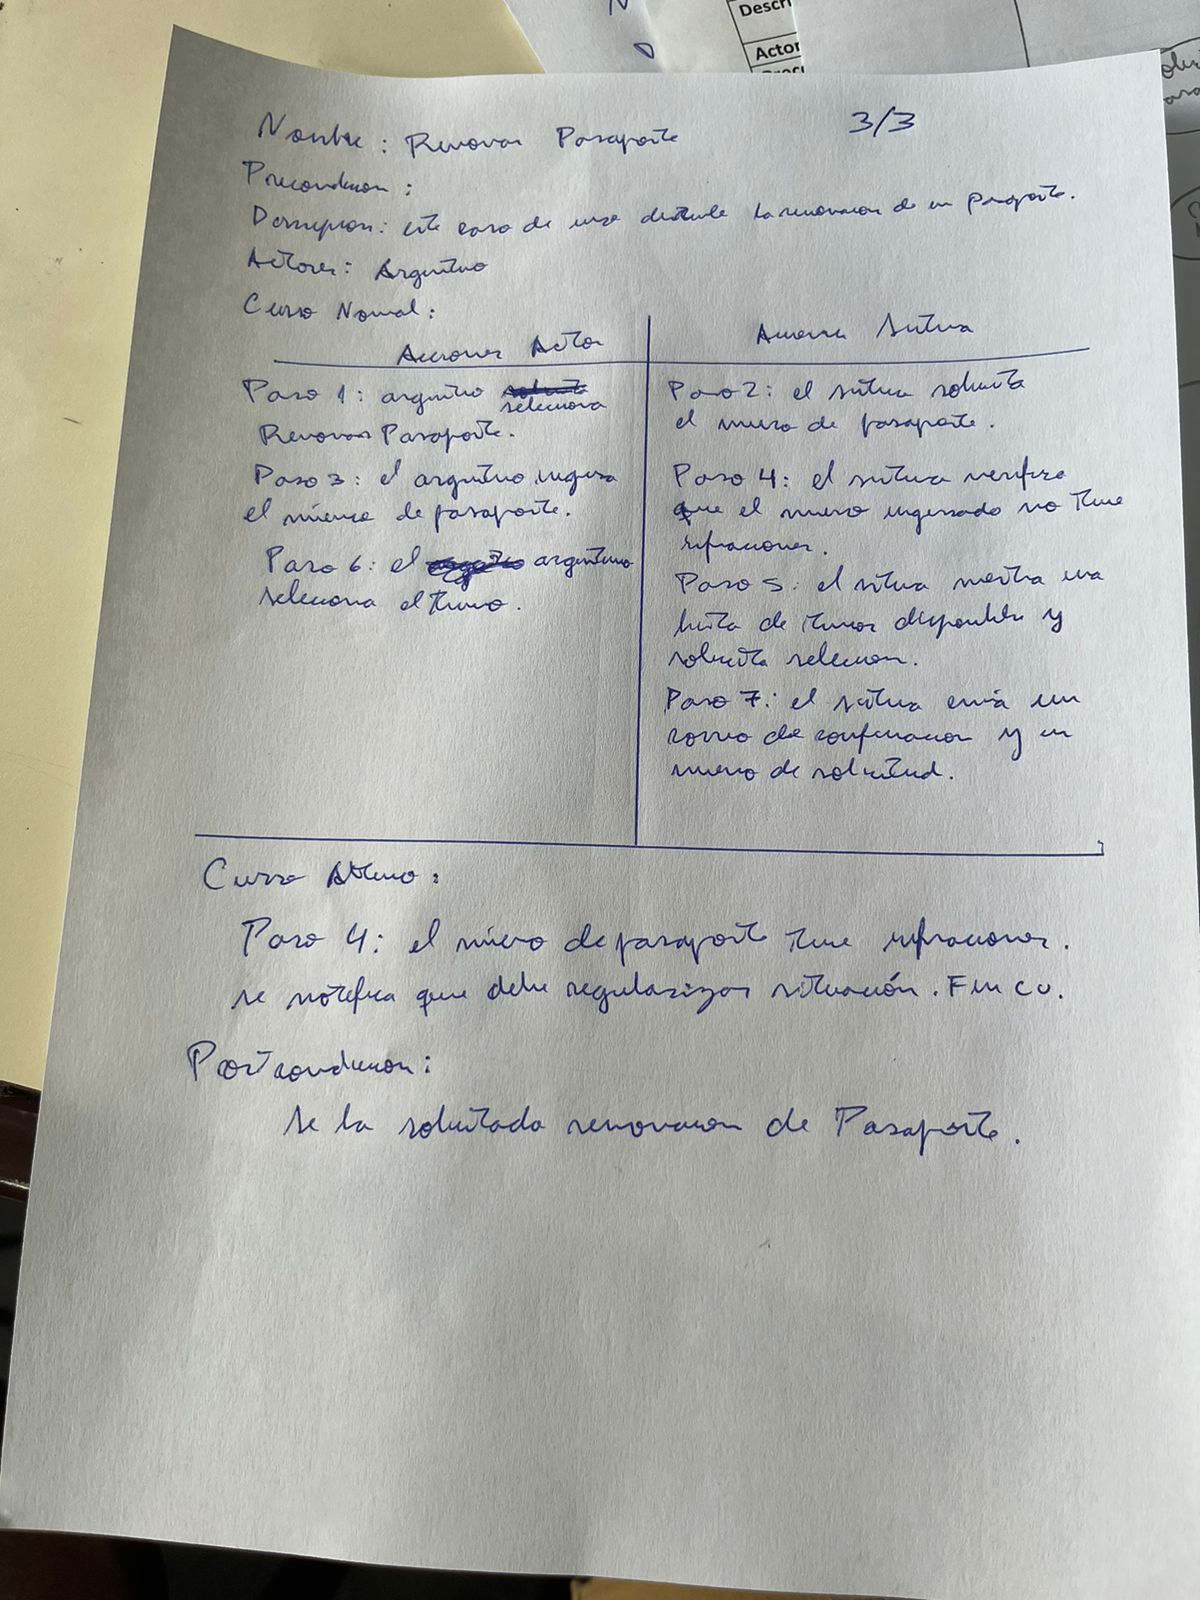 Descri
Actor
3/3
Nombre: Renovar Pasaporte
Precondicion:
Descripcion: este caso de uso describe la renovacion de un pasaporte.
Actores: Argentino
Curso Normal:
Acciones Actor
Acciones Sistema
Paso 1: argentino selecciona
Renovar Pasaporte.
Paso 3: el argentino ingresa
el número de pasaporte.
Paso 6: el argentino
selecciona el turno.
Paso 2: el sistema solicita
el numero de pasaporte.
Paso 4: el sistema verifica
que el numero ingresado no tiene
infracciones.
Paso 5: el sistema muestra una
lista de turnos disponibles y
solicita seleccion.
Paso 7: el sistema envía un
correo de confirmacion y un
numero de solicitud.
Curso Alterno:
Paso 4: el número de pasaporte tiene infracciones.
se notifica que debe regularizar situación. Fin CU.
Postcondicion:
se la solicitada renovacion de Pasaporte.